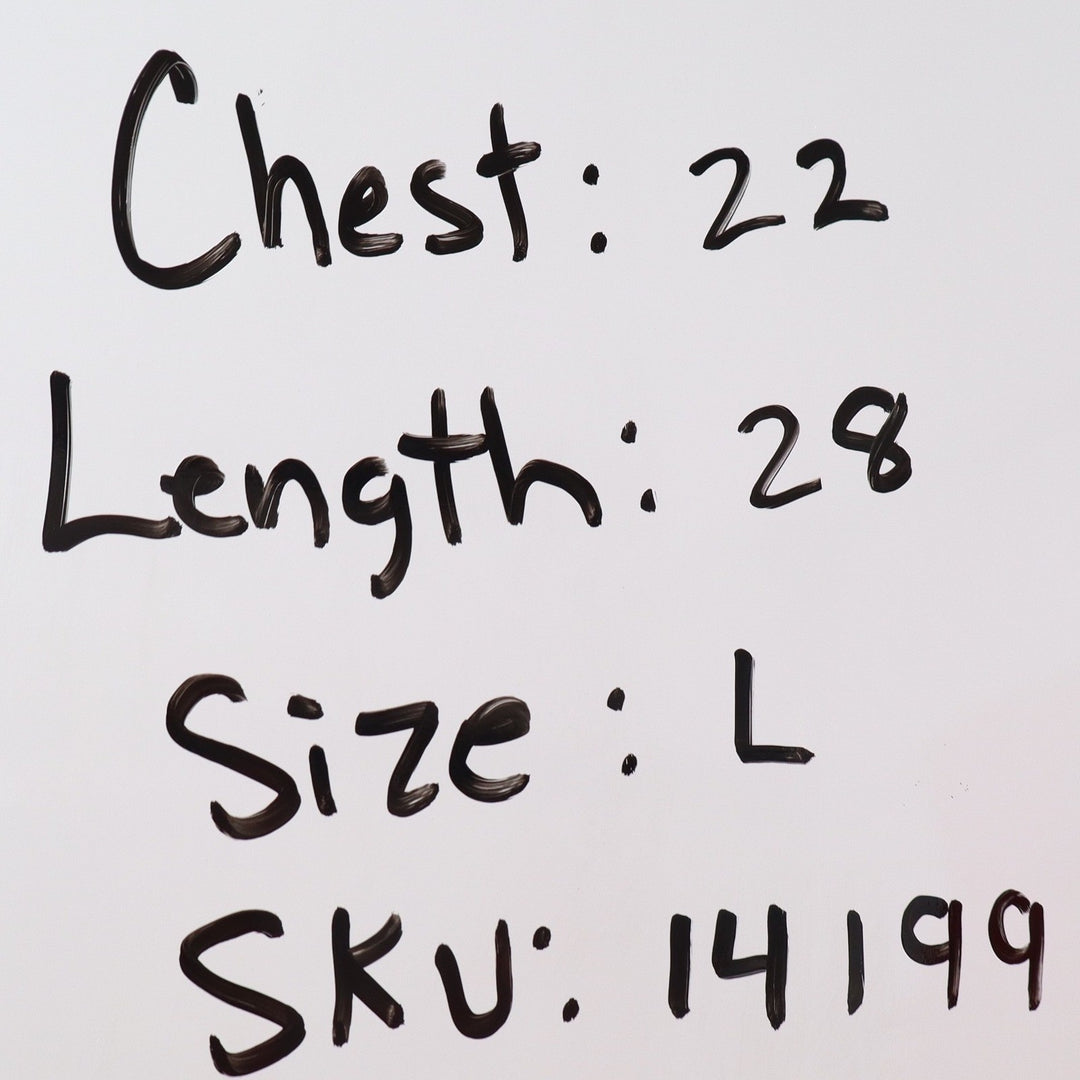 Chest: 22
Length: 28
Size: L
SKU: 14199